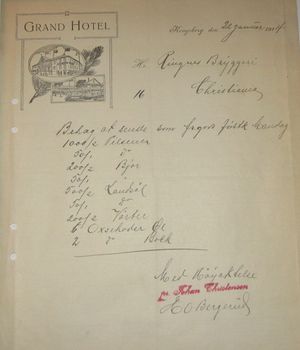 GRAND HOTEL
Kongsberg den 22 januar 19
Hr. Ringnes Bryggeri
16 Christiania
Behag at sende som first
1000/2 Pilsener
50/1 Do
200/2 Bjor
50/1 "
500/2 Landsøl
50/1 Do
200/2 Vørter
6 Oxehoder Øl
2 Do Bock
Med Høyaktelse
pr. Johan Christensen
H O Bergerud